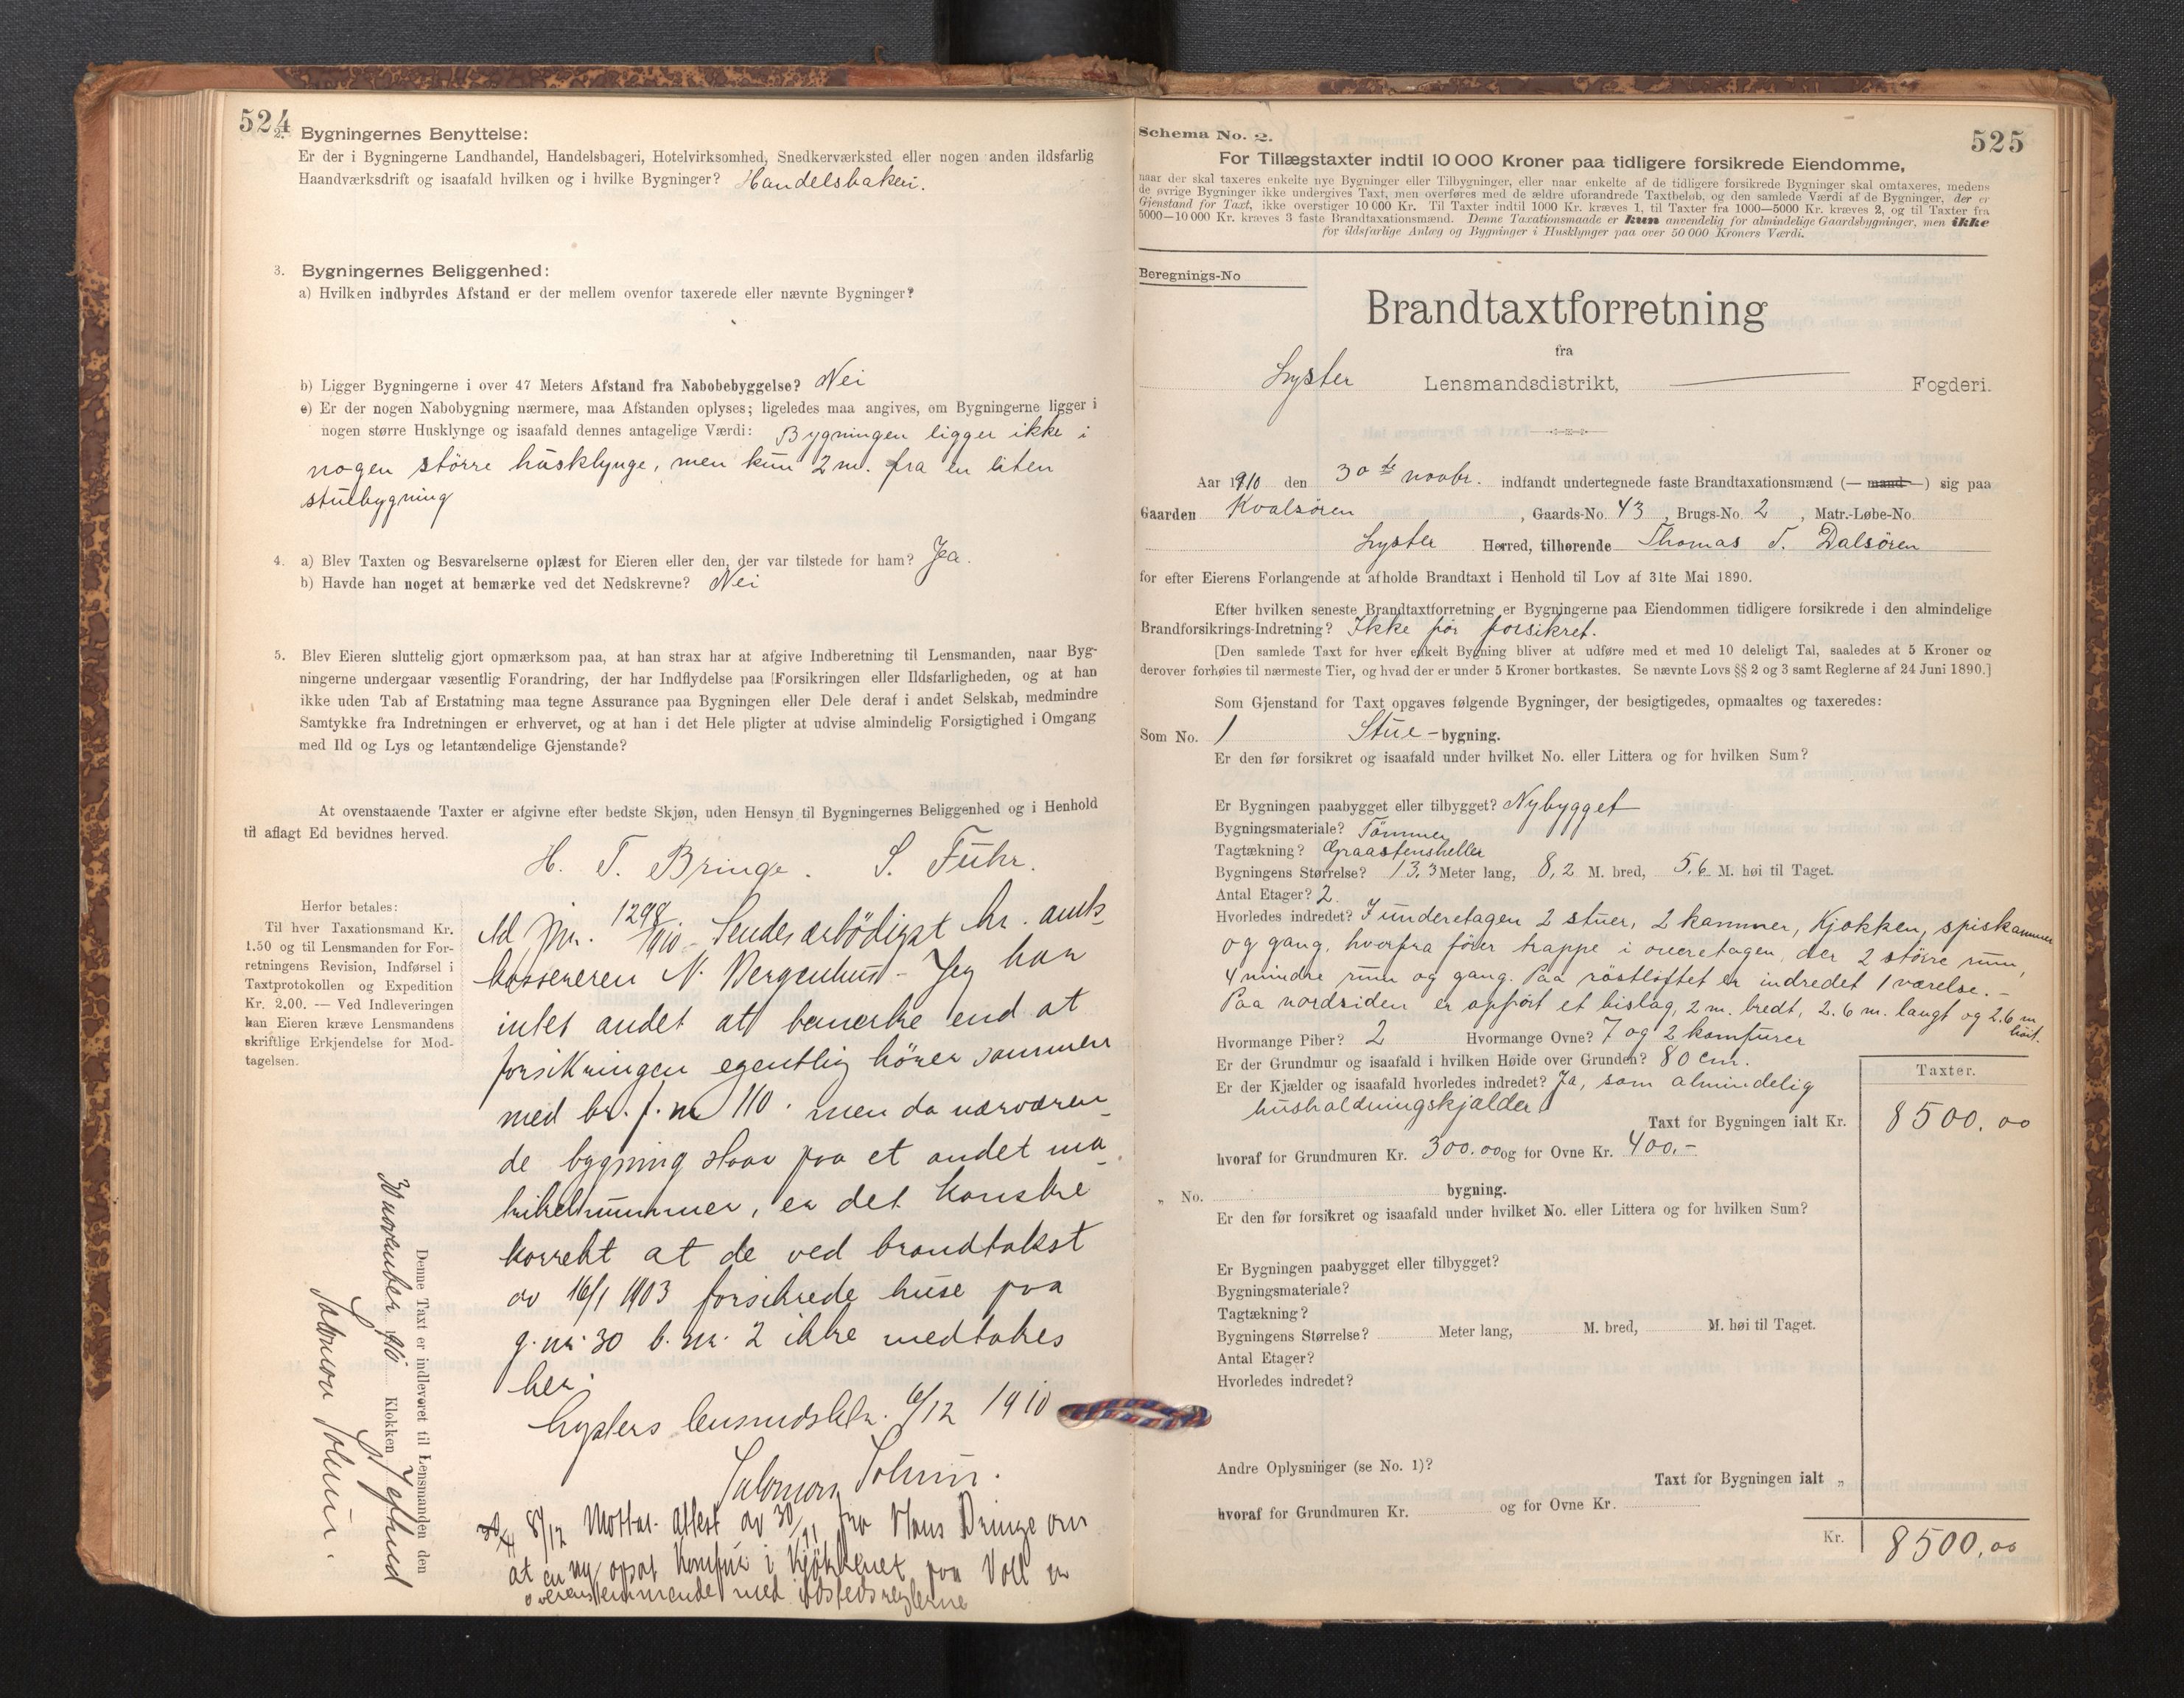 524
2. Bygningernes Benyttelse:
Er der i Bygningerne Landhandel, Handelsbageri, Hotelvirksomhed, Snedkerværksted eller nogen anden ildsfarlig
Haandværksdrift og isaafald hvilken og i hvilke Bygninger? Handelsbakeri.
3. Bygningernes Beliggenhed:
a) Hvilken indbyrdes Afstand er der mellem ovenfor taxerede eller nævnte Bygninger?
b) Ligger Bygningerne i over 47 Meters Afstand fra Nabobebyggelse? Nei
c) Er der nogen Nabobygning nærmere, maa Afstanden oplyses; ligeledes maa angives, om Bygningerne ligger i
nogen større Husklynge og isaafald dennes antagelige Værdi: Bygningen ligger ikke i
nogen större husklynge, men kun 2 m. fra en liten
stuebygning
4. a) Blev Taxten og Besvarelserne oplæst for Eieren eller den, der var tilstede for ham? Ja.
b) Havde han noget at bemærke ved det Nedskrevne? Nei
5. Blev Eieren sluttelig gjort opmærksom paa, at han strax har at afgive Indberetning til Lensmanden, naar Byg-
ningerne undergaar væsentlig Forandring, der har Indflydelse paa Forsikringen eller Ildsfarligheden, og at han
ikke uden Tab af Erstatning maa tegne Assurance paa Bygningen eller Dele deraf i andet Selskab, medmindre
Samtykke fra Indretningen er erhvervet, og at han i det Hele pligter at udvise almindelig Forsigtighed i Omgang
med Ild og Lys og letantændelige Gjenstande?
At ovenstaaende Taxter er afgivne efter bedste Skjøn, uden Hensyn til Bygningernes Beliggenhed og i Henhold
til aflagt Ed bevidnes herved.
H. T. Bringe. S. Fuhr.
Herfor betales:
Til hver Taxationsmand Kr.
1.50 og til Lensmanden for For-
retningens Revision, Indførsel i
Taxtprotokollen og Expedition
Kr. 2.00. — Ved Indleveringen
kan Eieren kræve Lensmandens
skriftlige Erkjendelse for Mod-
tagelsen.
Ad jnr. 1298/1910 Sendes ærbödigst hr. amts-
kassereren N. Bergenhus - Jeg har
intet andet at bemerke end at
forsikringen egentlig hörer sammen
med br. f. nr 110. men da nærværen-
de bygning staar paa et andet ma-
trikelnummer, er det kanske
korrekt at de ved brandtakst
av 16/1 1903 forsikrede huse paa
g. nr. 30 b. nr. 2 ikke medtakes
her.
Lysters lensmdsktr. 6/12 1910
Salomon Solum.
8/12 Mottat attest av 30/ fra Hans Bringe om
at en ny opsat komfur i kjökkenet paa Voll er
overenstemmende med ildstedsreglerne
Denne Taxt er indleveret til Lensmanden den
30 november 1910 Kloken
Salomon Solum.
Schema No. 2.
525
For Tillægstaxter indtil 10 000 Kroner paa tidligere forsikrede Eiendomme,
naar der skal taxeres enkelte nye Bygninger eller Tilbygninger, eller naar enkelte af de tidligere forsikrede Bygninger skal omtaxeres, medens
de øvrige Bygninger ikke undergives Taxt, men overføres med de ældre uforandrede Taxtbeløb, og den samlede Værdi af de Bygninger, der er
Gjenstand for Taxt, ikke overstiger 10 000 Kr. Til Taxter indtil 1000 Kr. kræves 1, til Taxter fra 1000—5000 Kr. kræves 2, og til Taxter fra
5000—10 000 Kr. kræves 3 faste Brandtaxationsmænd. Denne Taxationsmaade er kun anvendelig for almindelige Gaardsbygninger, men ikke
for ildsfarlige Anlæg og Bygninger i Husklynger paa over 50 000 Kroners Værdi.
Beregnings-No
Brandtaxtforretning
fra
Lyster Lensmandsdistrikt, Fogderi.
Aar 1910 den 30te novbr. indfandt undertegnede faste Brandtaxationsmænd (— mand —) sig paa
Gaarden Kvalsören, Gaards-No. 43, Brugs-No. 2, Matr.-Løbe-No.
Lyster Herred, tilhørende Thomas T. Dalsören
for efter Eierens Forlangende at afholde Brandtaxt i Henhold til Lov af 31te Mai 1890.
Efter hvilken seneste Brandtaxtforretning er Bygningerne paa Eiendommen tidligere forsikrede i den almindelige
Brandforsikrings-Indretning? Ikke för forsikret.
[Den samlede Taxt for hver enkelt Bygning bliver at udføre med et med 10 deleligt Tal, saaledes at 5 Kroner og
derover forhøies til nærmeste Tier, og hvad der er under 5 Kroner bortkastes. Se nævnte Lovs §§ 2 og 3 samt Reglerne af 24 Juni 1890.]
Som Gjenstand for Taxt opgaves følgende Bygninger, der besigtigedes, opmaaltes og taxeredes:
Som No. 1 Stue-bygning.
Er den før forsikret og isaafald under hvilket No. eller Littera og for hvilken Sum?
Er Bygningen paabygget eller tilbygget? Nybygget
Bygningsmateriale? Tömmer
Tagtækning? Graastensheller
Bygningens Størrelse? 13,3 Meter lang, 8,2 M. bred, 5,6 M. høi til Taget.
Antal Etager? 2.
Hvorledes indredet? I underetagen 2 stuer, 2 kammer, Kjøkken, spiskammer
og gang, hvorfra förer trappe i overetagen, der 2 större rum,
4 mindre rum og gang. Paa röstloftet er indredet 1 værelse. -
Paa nordsiden er opfört et bislag, 2 m. bredt, 2.6 m. langt og 2.6 m
höit.
Hvormange Piber? 2 Hvormange Ovne? 7 og 2 komfurer
Er der Grundmur og isaafald i hvilken Høide over Grunden? 80 cm.
Er der Kjælder og isaafald hvorledes indredet? Ja, som almindelig
husholdningskjælder
Taxter.
Taxt for Bygningen ialt Kr. 8500.00
hvoraf for Grundmuren Kr. 300.00 og for Ovne Kr. 400.-
„ No. bygning.
Er den før forsikret og isaafald under hvilket No. eller Littera og for hvilken Sum?
Er Bygningen paabygget eller tilbygget?
Bygningsmateriale?
Tagtækning?
Bygningens Størrelse? Meter lang, M. bred, M. høi til Taget.
Antal Etager?
Hvorledes indredet?
Andre Oplysninger (se No. 1)?
Taxt for Bygningen ialt „
hvoraf for Grundmuren Kr. og for Ovne Kr.
Kr. 8500.00